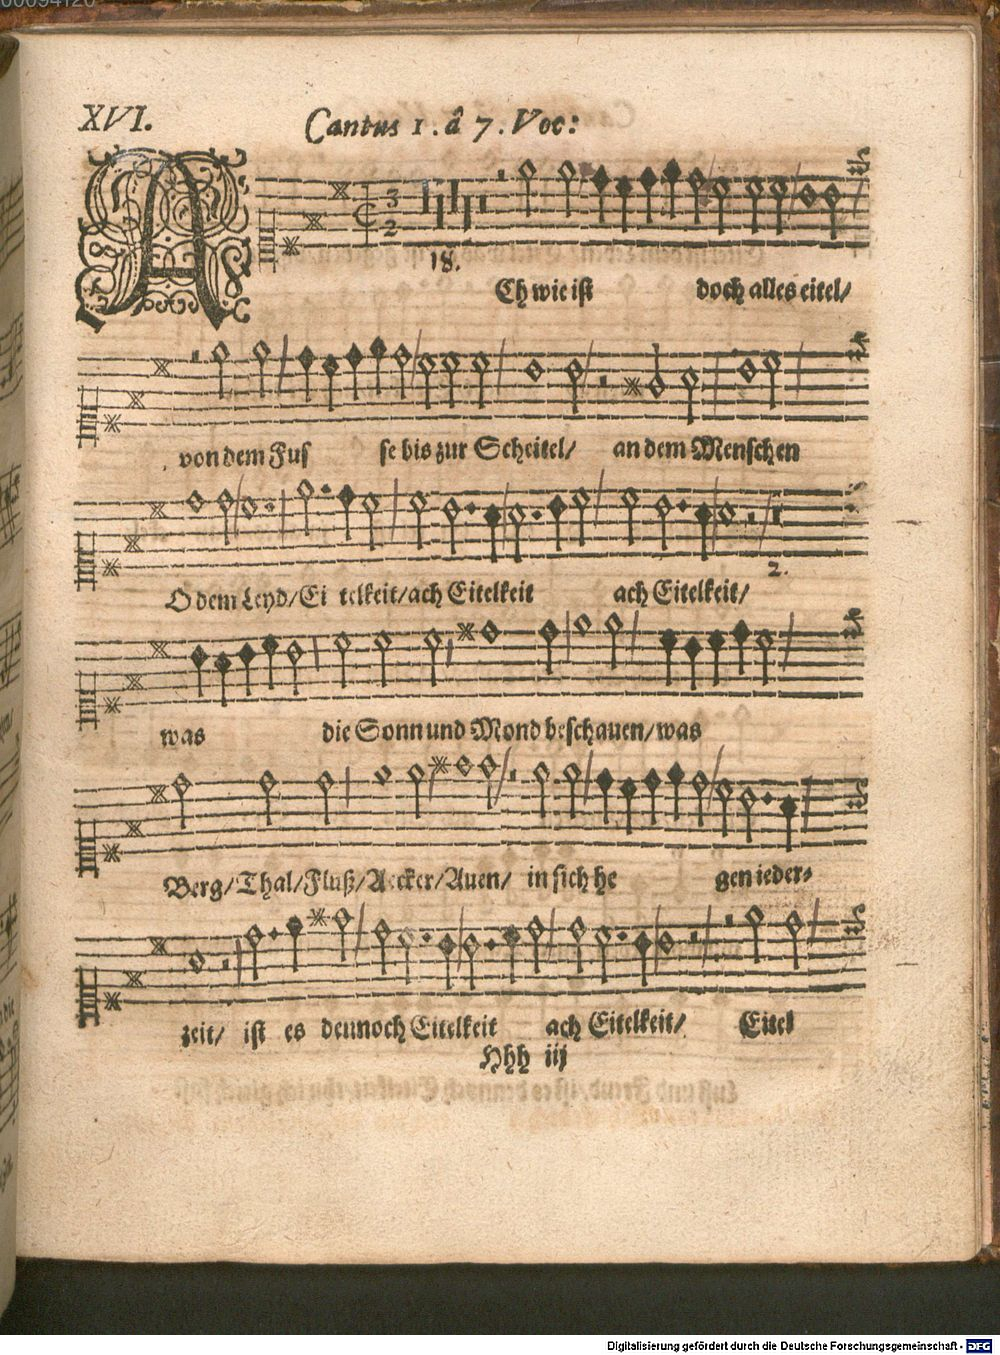 00094120
XVI.
Cantus 1. â 7. Voc:
A
3
2
18.
Ch wie ist doch alles eitel/
von dem Fus se bis zur Scheitel/ an dem Menschen
2.
O dem Leyd/Ei telkeit/ach Eitelkeit ach Eitelkeit/
was die Sonn und Mond beschauen/was
Berg/Thal/Fluß/Aecker/Auen/ in sich he gen ieder-
zeit/ ist es dennoch Eitelkeit ach Eitelkeit/ Eitel
Hhh iij
Digitalisierung gefördert durch die Deutsche Forschungsgemeinschaft - DFG